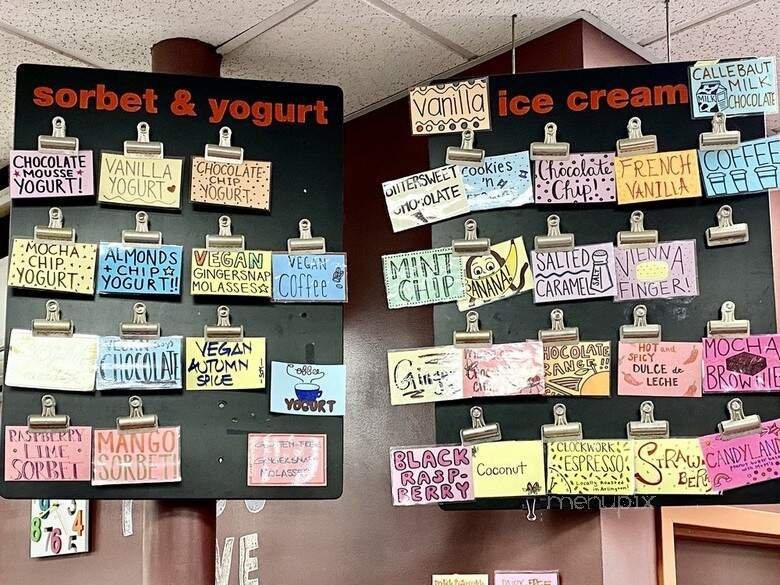 sorbet & yogurt
CHOCOLATE
MOUSSE
YOGURT!
VANILLA
YOGURT
CHOCOLATE
CHIP
YOGURT
MOCHA
CHIP
YOGURT
ALMONDS
+ CHIP
YOGURT!!
VEGAN
GINGERSNAP
MOLASSES
VEGAN
COFFEE
CHOCOLATE
VEGAN
AUTUMN
SPICE
COFFEE
YOGURT
RASPBERRY
LIME
SORBET
MANGO
SORBET!
GLUTEN-FREE
GINGERSNAP
MOLASSES
vanilla
ice cream
CALLEBAUT
MILK
MILK
CHOCOLATE
BITTERSWEET
CHOCOLATE
cookies
'n
Chocolate
Chip!
FRENCH
VANILLA
COFFEE
MINT
CHIP
BANANA!
SALTED
CARAMEL
SALT
VIENNA
FINGER!
Ginger
CHOCOLATE
ORANGE!
HOT and
SPICY
DULCE de
LECHE
MOCHA
BROWNIE
BLACK
RASP
BERRY
Coconut
CLOCKWORK
ESPRESSO
Locally Roasted
in Arlington!
STRAW
BERRY
CANDYLAND
menupix
8
4
7
6
5
VE
DAIRY FREE